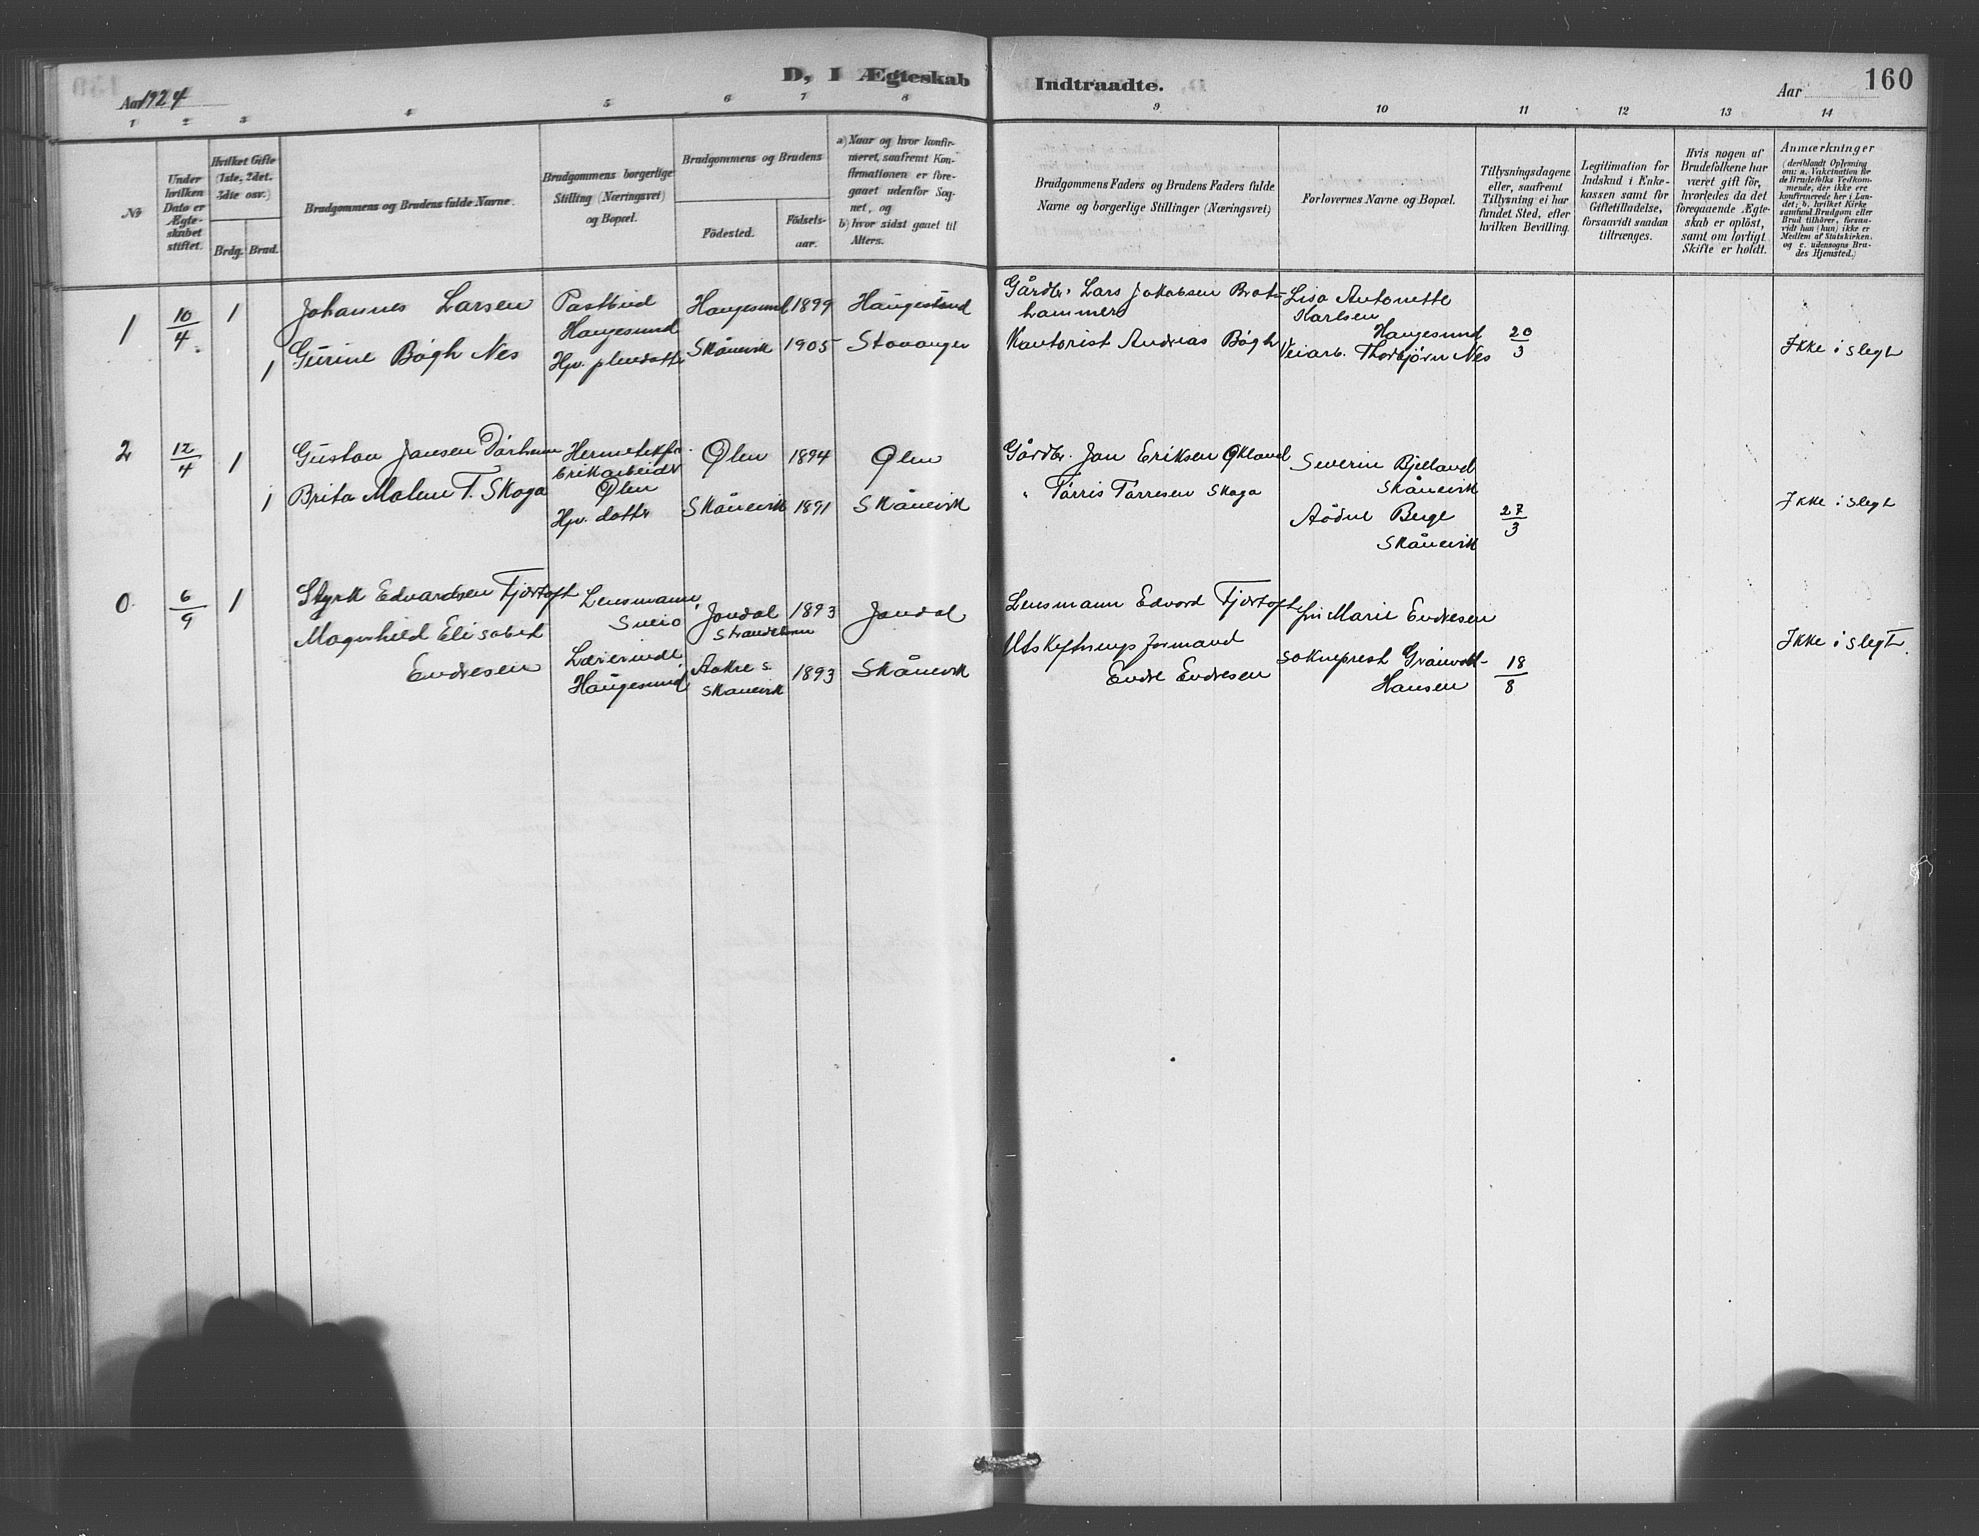 D, I Ægteskab Indtraadte. 160
Aar 1924 Aar
1 2 3 4 5 6 7 8 9 10 11 12 13 14
No
Under hvilken Dato er Ægteskabet stiftet.
Hvilket Gifte (1ste, 2det, 3die osv.)
Brdg. Brud.
Brudgommens og Brudens fulde Navne.
Brudgommens borgerlige Stilling (Næringsvei) og Bopæl.
Brudgommens og Brudens
Födested. Födsels-aar.
a) Naar og hvor konfirmeret, saafremt Konfirmationen er foregaaet udenfor Sognet, og
b) hvor sidst gaaet til Alters.
Brudgommens Faders og Brudens Faders fulde Navne og borgerlige Stillinger (Næringsvei)
Forlovernes Navne og Bopæl.
Tillysningsdagene eller, saafremt Tillysning ei har fundet Sted, efter hvilken Bevilling.
Legitimation for Indskud i Enkekassen samt for Giftetilladelse, forsaavidt saadan tiltrænges.
Hvis nogen af Brudefolkene har været gift för, hvorledes da det foregaaende Ægteskab er oplöst, samt om lovligt Skifte er holdt.
Anmærkninger
(deriblandt Oplysning om: a. Vakcination for de Brudefolks Vedkommende, der ikke ere konfirmerede her i Landet; b. hvilket Kirkesamfund Brudgom eller Brud tilhörer, forsaavidt han (hun) ikke er Medlem af Statskirken, og c. udensogns Brudes Hjemsted.)
1 10/4 1 Johannes Larsen Postbud Haugesund Haugesund 1899 Haugesund Gårdbr. Lars Jakobsen Brat-hammer Lisa Antonette Karlsen Haugesund
1 Gurine Bøgh Nes Hjv. pleiedatt. Skånevik 1905 Stavanger Kontorist Andreas Bøgh Veiarb. Thorbjørn Nes 20/3 Ikke i slegt
2 12/4 1 Gustav Jansen Hermetikfabrikarbeider Ølen Ølen 1894 Ølen Gårdbr. Jan Eriksen Økland Severin Bjelland Skånevik
1 Brita Malene T. Skaga Hjv. datter Skånevik 1891 Skånevik " Tørris Tørresen Skaga Berge Skånevik 27/3 Ikke i slegt
0 6/9 1 Styrk Edvardsen Fjørtoft Lensmann, Sveio Jondal Strandebarm 1893 Jondal Lensmann Edvard Fjørtoft fru Marie Endresen
Magnhild Elisabet Endresen Lærerinde Haugesund Aakre s Skånevik 1893 Skånevik Utskiftningsformand Endre Endresen sokneprest Hansen 18/8 Ikke i slegt.